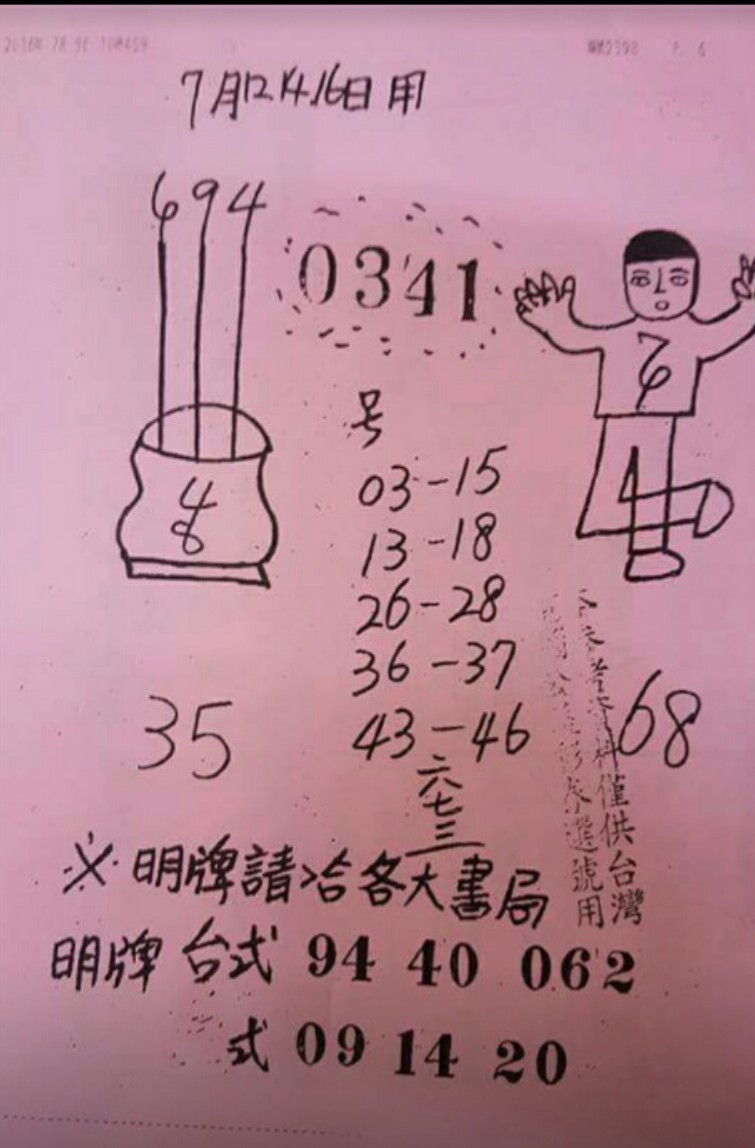 2016年 7月 9日 10時45分
編號2398 P. 6
7月12.14.16日用
694
0341
7
6
4
8
号
03-15
13-18
26-28
36-37
43-46
35
68
六七三
參考資料僅供台灣
彩券選號用
※明牌請洽各大書局
明牌 台式 94 40 062
式 09 14 20